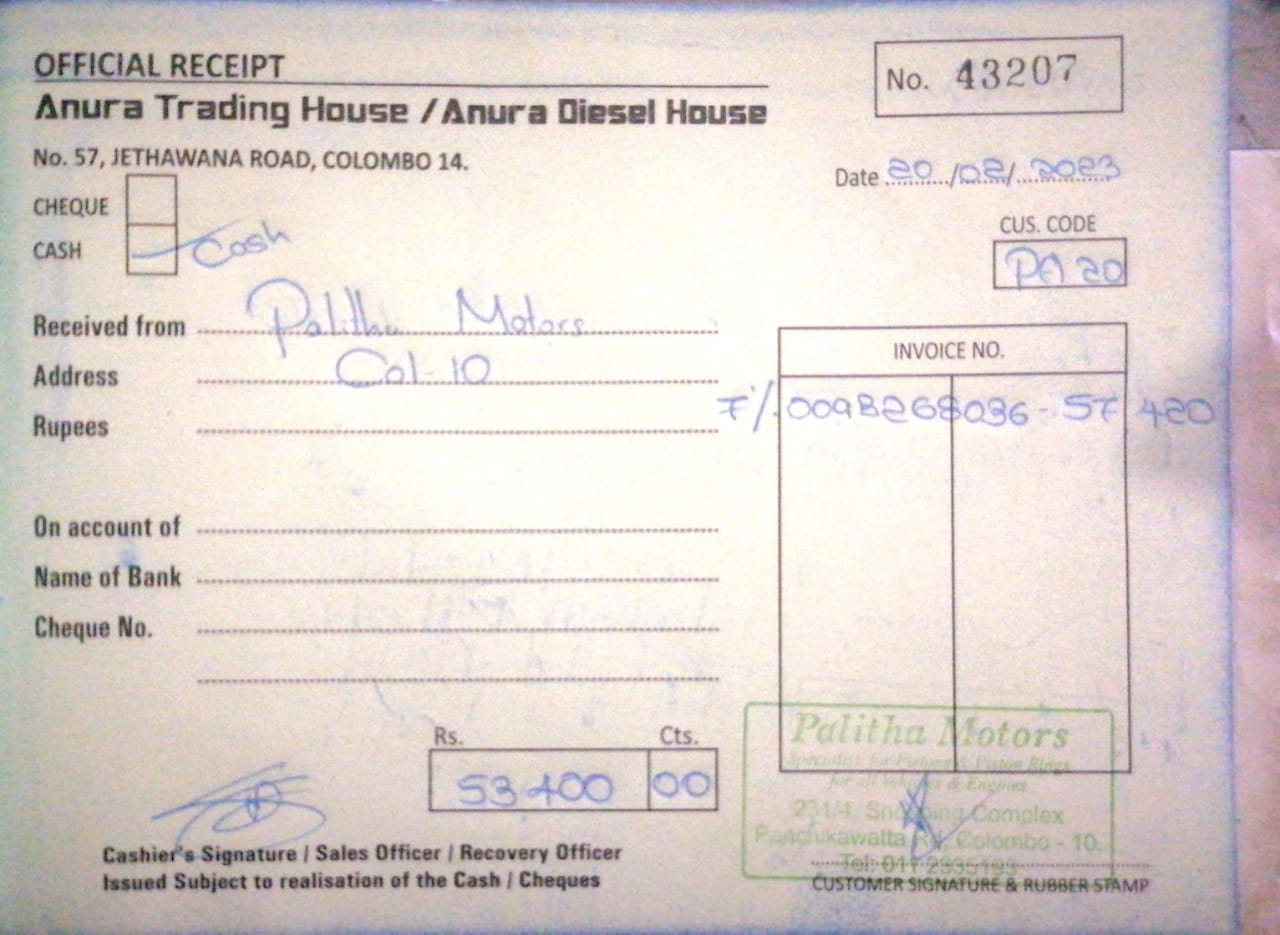 OFFICIAL RECEIPT
No. 43207
Anura Trading House / Anura Diesel House
No. 57, JETHAWANA ROAD, COLOMBO 14.
Date 20/02/2023
CHEQUE
CUS. CODE
CASH Cash
PA 20
Received from Palitha Motors
INVOICE NO.
Address Col-10
F/. 0098268036 - 57 420
Rupees
On account of
Name of Bank
Cheque No.
Rs. Cts.
53 400 00
Palitha Motors
Specialist for Pistons & Piston Rings
for all Vehicles & Engines
231/4, Shopping Complex
Panchikawatta Rd. Colombo - 10.
Tel: 011 2335193
Cashier's Signature / Sales Officer / Recovery Officer
Issued Subject to realisation of the Cash / Cheques
CUSTOMER SIGNATURE & RUBBER STAMP